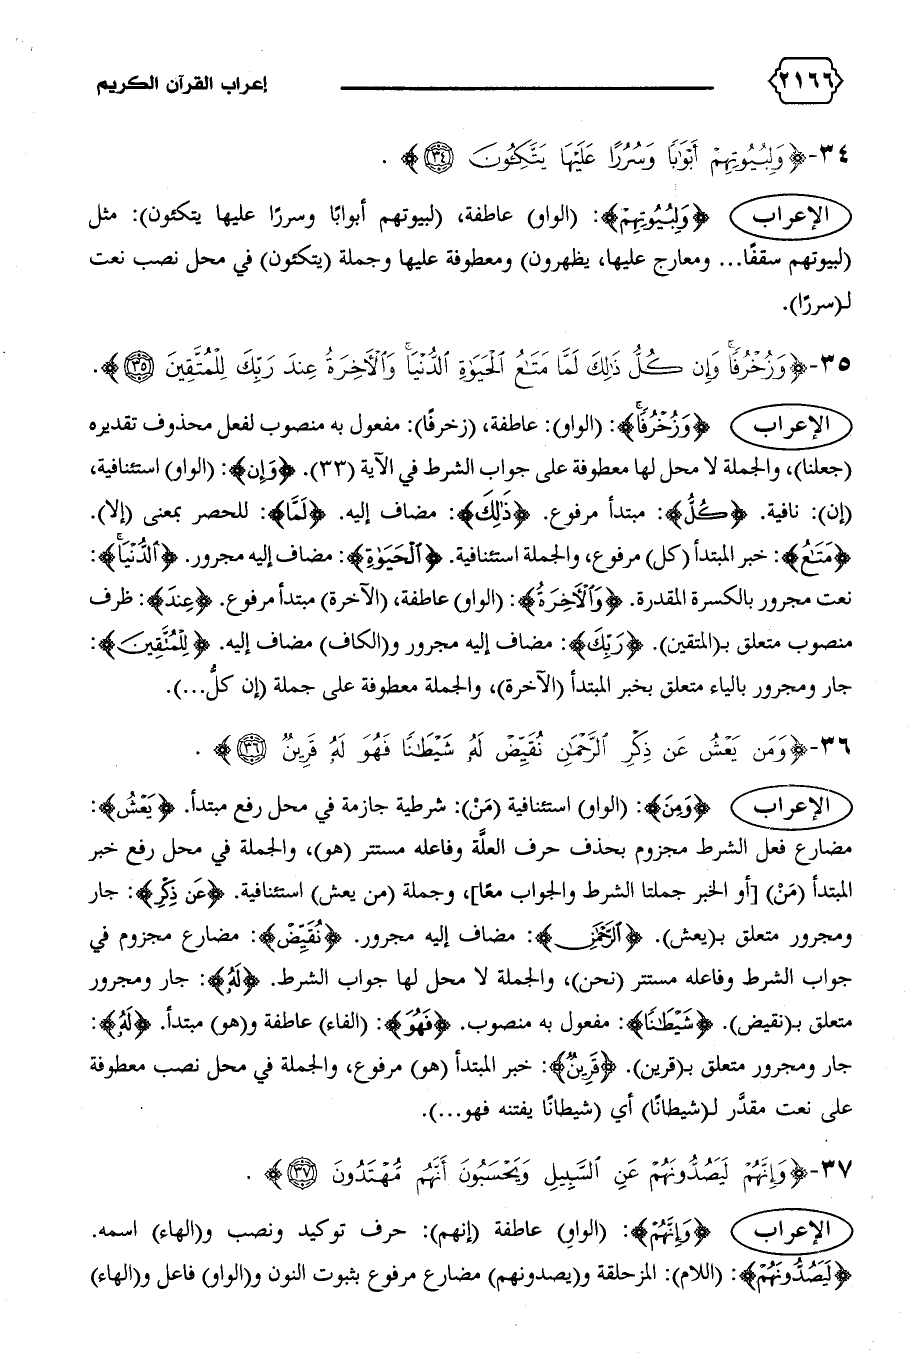 ٢١٦٦ إعراب القرآن الكريم
٣٤-﴿وَلِبُيُوتِهِمْ أَبْوَٰبًا وَسُرُرًا عَلَيْهَا يَتَّكِـُٔونَ ٣٤﴾ .
الإعراب ﴿وَلِبُيُوتِهِمْ﴾: (الواو) عاطفة، (لبيوتهم أبوابًا وسررًا عليها يتكئون): مثل
(لبيوتهم سقفًا... ومعارج عليها، يظهرون) ومعطوفة عليها وجملة (يتكئون) في محل نصب نعت
لـ(سررًا).
٣٥-﴿وَزُخْرُفًا ۚ وَإِن كُلُّ ذَٰلِكَ لَمَّا مَتَـٰعُ الْحَيَوٰةِ الدُّنْيَا ۚ وَالْآخِرَةُ عِندَ رَبِّكَ لِلْمُتَّقِينَ ٣٥﴾.
الإعراب ﴿وَزُخْرُفًا ۚ﴾: (الواو): عاطفة، (زخرفًا): مفعول به منصوب لفعل محذوف تقديره
(جعلنا)، والجملة لا محل لها معطوفة على جواب الشرط في الآية (٣٣). ﴿وَإِن﴾: (الواو) استئنافية،
(إن): نافية. ﴿كُلُّ﴾: مبتدأ مرفوع. ﴿ذَٰلِكَ﴾: مضاف إليه. ﴿لَمَّا﴾: للحصر بمعنى (إلا).
﴿مَتَـٰعُ﴾: خبر المبتدأ (كل) مرفوع، والجملة استئنافية. ﴿الْحَيَوٰةِ﴾: مضاف إليه مجرور. ﴿الدُّنْيَا ۚ﴾:
نعت مجرور بالكسرة المقدرة. ﴿وَالْآخِرَةُ﴾: (الواو) عاطفة، (الآخرة) مبتدأ مرفوع. ﴿عِندَ﴾: ظرف
منصوب متعلق بـ(المتقين). ﴿رَبِّكَ﴾: مضاف إليه مجرور و(الكاف) مضاف إليه. ﴿لِلْمُتَّقِينَ﴾:
جار ومجرور بالياء متعلق بخبر المبتدأ (الآخرة)، والجملة معطوفة على جملة (إن كلُّ...).
٣٦-﴿وَمَن يَعْشُ عَن ذِكْرِ الرَّحْمَـٰنِ نُقَيِّضْ لَهُ شَيْطَـٰنًا فَهُوَ لَهُ قَرِينٌ ٣٦﴾ .
الإعراب ﴿وَمِنَ﴾: (الواو) استئنافية (مَنْ): شرطية جازمة في محل رفع مبتدأ. ﴿يَعْشُ﴾:
مضارع فعل الشرط مجزوم بحذف حرف العلَّة وفاعله مستتر (هو)، والجملة في محل رفع خبر
المبتدأ (مَنْ) [أو الخبر جملتا الشرط والجواب معًا]، وجملة (من يعش) استئنافية. ﴿عَن ذِكْرِ﴾: جار
ومجرور متعلق بـ(يعش). ﴿الرَّحْمَـٰنِ﴾: مضاف إليه مجرور. ﴿نُقَيِّضْ﴾: مضارع مجزوم في
جواب الشرط وفاعله مستتر (نحن)، والجملة لا محل لها جواب الشرط. ﴿لَهُ﴾: جار ومجرور
متعلق بـ(نقيض). ﴿شَيْطَـٰنًا﴾: مفعول به منصوب. ﴿فَهُوَ﴾: (الفاء) عاطفة و(هو) مبتدأ. ﴿لَهُ﴾:
جار ومجرور متعلق بـ(قرين). ﴿قَرِينٌ﴾: خبر المبتدأ (هو) مرفوع، والجملة في محل نصب معطوفة
على نعت مقدَّر لـ(شيطانًا) أي (شيطانًا يفتنه فهو...).
٣٧-﴿وَإِنَّهُمْ لَيَصُدُّونَهُمْ عَنِ السَّبِيلِ وَيَحْسَبُونَ أَنَّهُم مُّهْتَدُونَ ٣٧﴾ .
الإعراب ﴿وَإِنَّهُمْ﴾: (الواو) عاطفة (إنهم): حرف توكيد ونصب و(الهاء) اسمه.
﴿لَيَصُدُّونَهُمْ﴾: (اللام): المزحلقة و(يصدونهم) مضارع مرفوع بثبوت النون و(الواو) فاعل و(الهاء)